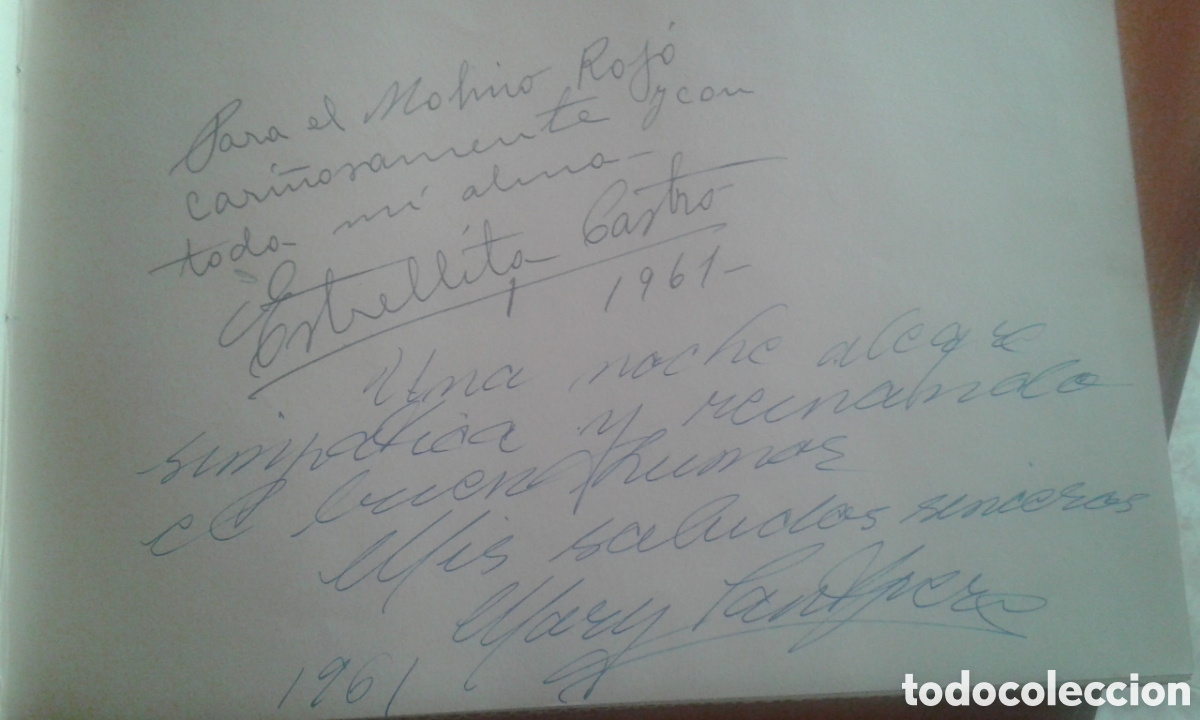 Para el Molino Rojo
cariñosamente y con
toda mi alma-
Estrellita Castro
1961-
Una noche alegre
simpatica y reinando
el buen humor
Mis saludos sinceros
Mary Santpere
1961
todocoleccion